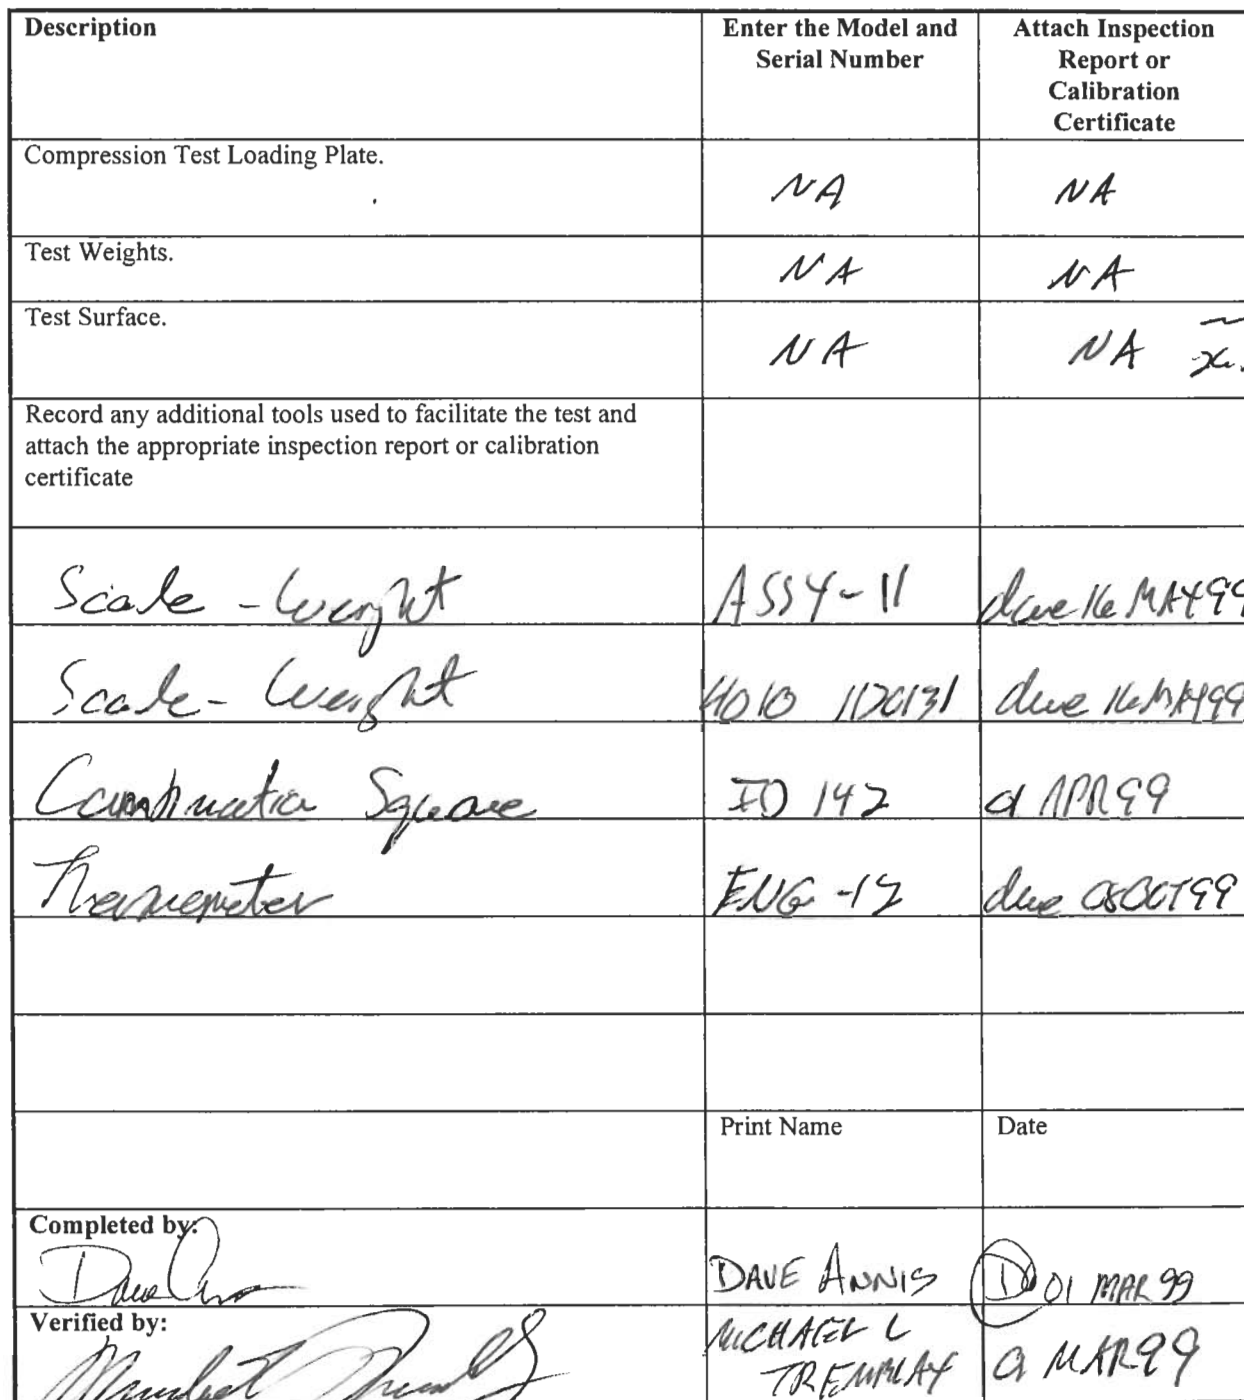 Description
Enter the Model and
Serial Number
Attach Inspection
Report or
Calibration
Certificate
Compression Test Loading Plate.
NA
NA
Test Weights.
NA
NA
Test Surface.
NA
NA
Record any additional tools used to facilitate the test and
attach the appropriate inspection report or calibration
certificate
Scale - Weight
ASSY-11
due 16 MAY99
Scale - Weight
due 16 MAY99
Combination Square
ID 142
APR99
Thermometer
ENG-12
due OCT99
Print Name
Date
Completed by:
DAVE ANNIS
01 MAR 99
Verified by:
MICHAEL L
TREMBLAY
MAR99